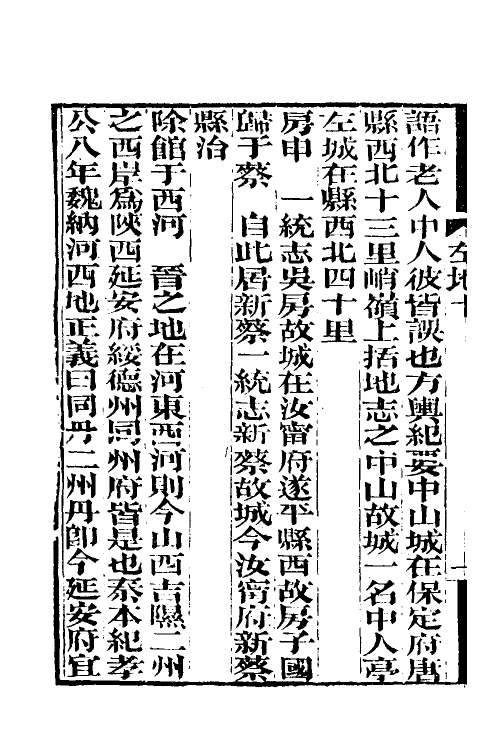 左地十
語作老人中人彼皆誤也方輿紀要中山城在保定府唐
縣西北十三里峭嶺上括地志之中山故城一名中人亭
左城在縣西北四十里
房申　一統志吳房故城在汝甯府遂平縣西故房子國
歸于蔡　自此居新蔡一統志新蔡故城今汝甯府新蔡
縣治
除館于西河　晉之地在河東西河則今山西吉隰二州
之西岸爲陝西延安府綏德州同州府皆是也秦本紀孝
公八年魏納河西地正義曰同丹二州丹卽今延安府宜